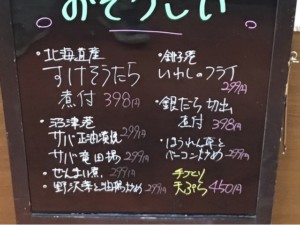 おそうじい
・北海道産
すけそうたら
煮付 398円
・沼津港
サバ正油漬焼 299円
サバ竜田揚 299円
・ぜんまい煮 299円
・野沢菜と油揚炒め 299円
・銚子港
いわしのフライ
299円
・銀だら切出
煮付 398円
・ほうれん草と
ベーコン炒め 299円
手づくり
天ぷら 450円